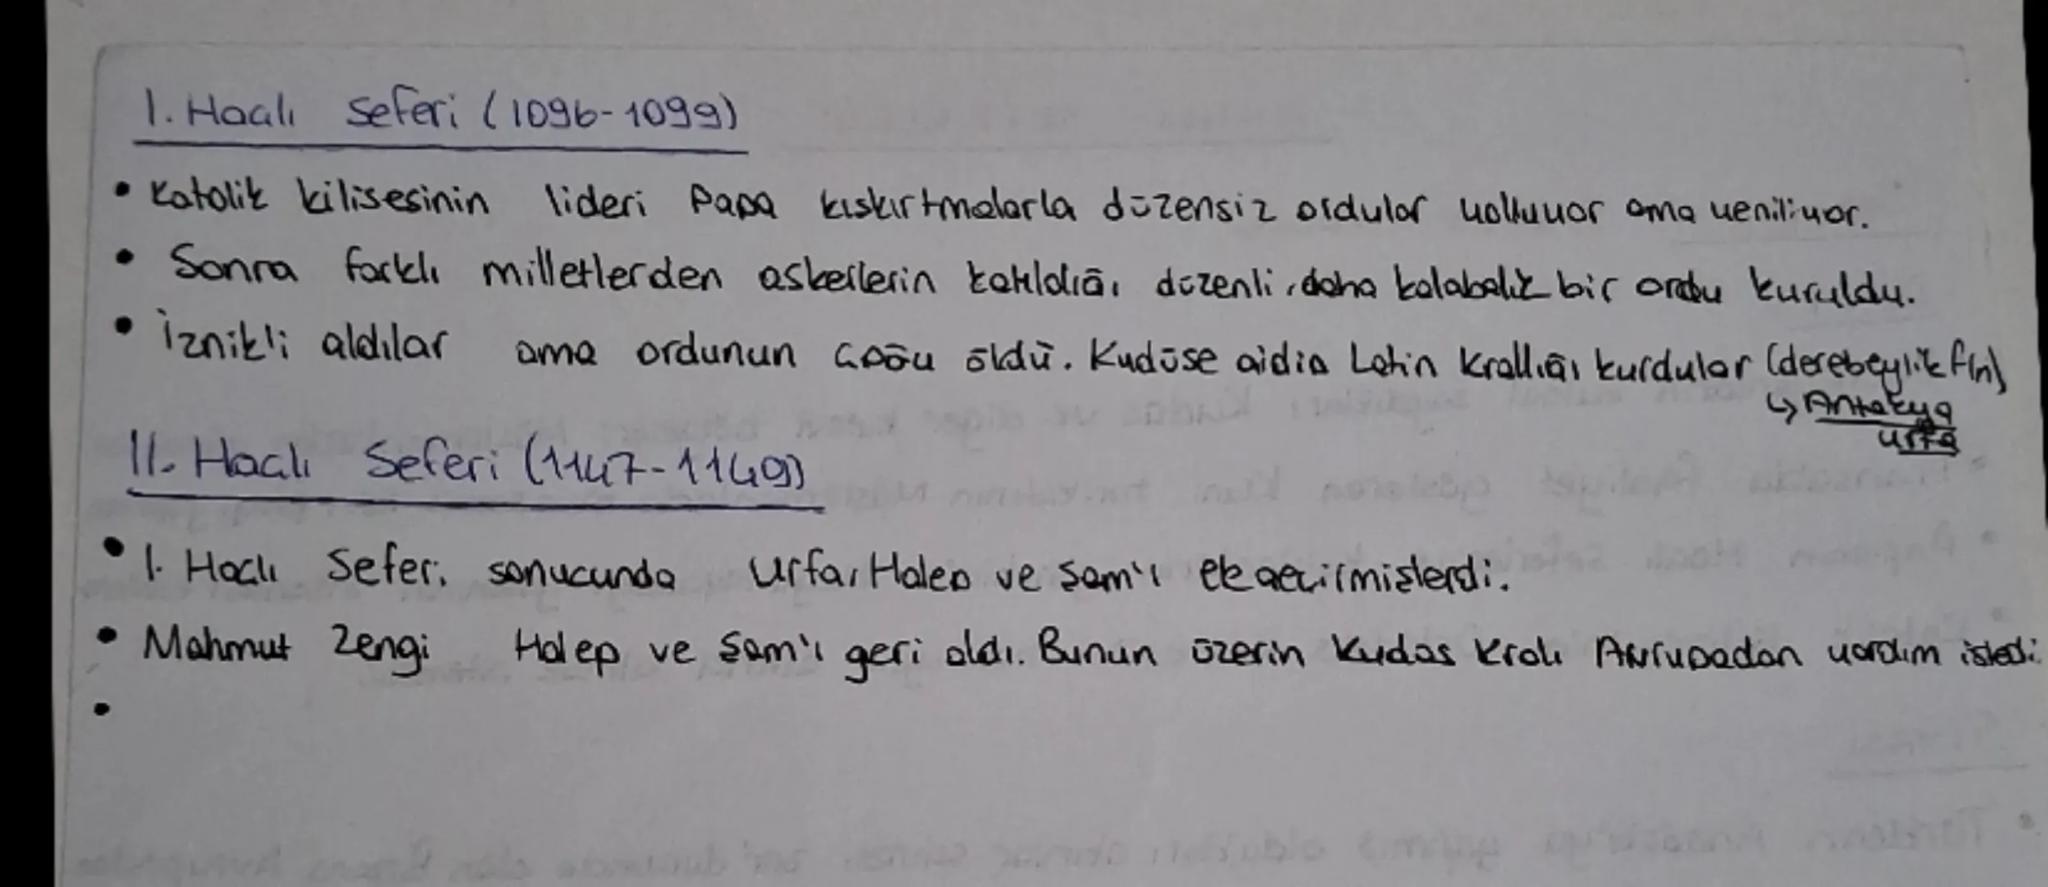 I. Haçlı Seferi (1096-1099)
• Katolik kilisesinin lideri Papa kışkırtmalarla düzensiz ordular yolluyor ama yeniliyor.
• Sonra farklı milletlerden askerlerin katıldığı düzenli, daha kalabalık bir ordu kuruldu.
• İznik'i aldılar ama ordunun çoğu öldü. Kudüse gidip Latin Krallığı kurdular (derebeylik
↳ Antakya
Urfa
II. Haçlı Seferi (1147-1149)
• I. Haçlı Seferi sonucunda Urfa, Halep ve Şam'ı ele geçirmişlerdi.
• Mahmut Zengi Halep ve Şam'ı geri aldı. Bunun üzerin Kudüs Kralı Avrupadan yardım istedi.
•